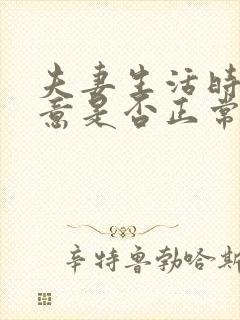 夫妻生活时
意是否正常
辛特鲁勃哈斯